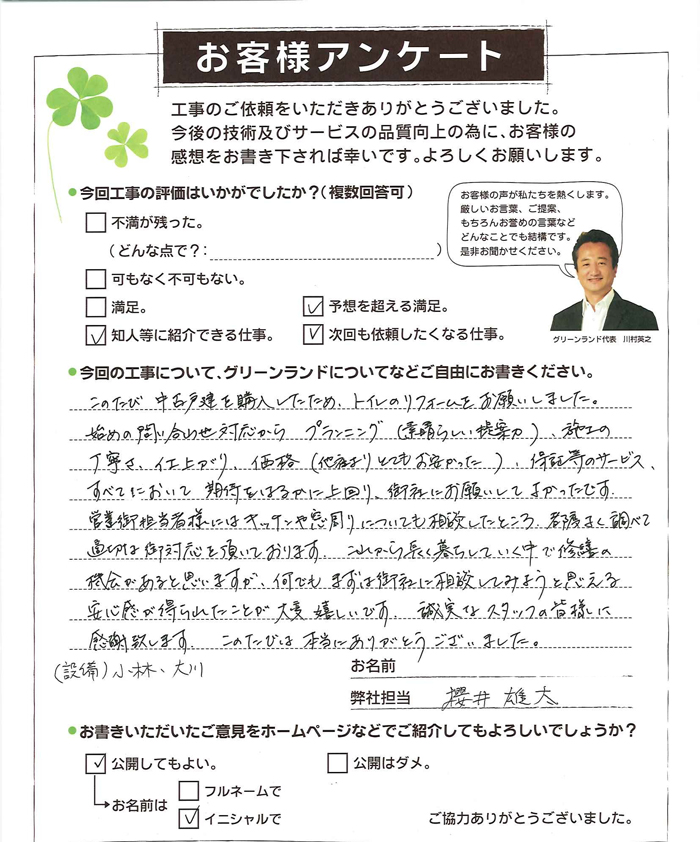 お客様アンケート
工事のご依頼をいただきありがとうございました。
今後の技術及びサービスの品質向上の為に、お客様の
感想をお書き下されば幸いです。よろしくお願いします。
●今回工事の評価はいかがでしたか？（複数回答可）
□ 不満が残った。
（どんな点で？：　）
□ 可もなく不可もない。
□ 満足。　☑ 予想を超える満足。
☑ 知人等に紹介できる仕事。　☑ 次回も依頼したくなる仕事。
お客様の声が私たちを熱くします。
厳しいお言葉、ご提案、
もちろんお誉めの言葉など
どんなことでも結構です。
是非お聞かせください。
グリーンランド代表　川村英之
●今回の工事について、グリーンランドについてなどご自由にお書きください。
このたび 中古戸建を購入したため、トイレのリフォームをお願いしました。
始めの問い合わせ対応から プランニング（素晴らしい提案力）、施工の
丁寧さ、仕上がり、価格（他社よりとてもお安かった）、保証等のサービス、
すべてにおいて 期待をはるかに上回り、御社にお願いしてよかったです。
営業御担当者様にはキッチンや窓周りについても相談したところ、都度よく調べて
適切な御対応を頂いております。これから長く暮らしていく中で修繕の
機会があると思いますが、何でも まずは御社に相談してみようと思える
安心感が得られたことが大変嬉しいです。誠実なスタッフの皆様に
感謝致します。このたびは本当にありがとうございました。
(設備) 小林、大川
お名前
弊社担当　櫻井 雄太
●お書きいただいたご意見をホームページなどでご紹介してもよろしいでしょうか？
☑ 公開してもよい。　□ 公開はダメ。
→お名前は　□ フルネームで
☑ イニシャルで
ご協力ありがとうございました。